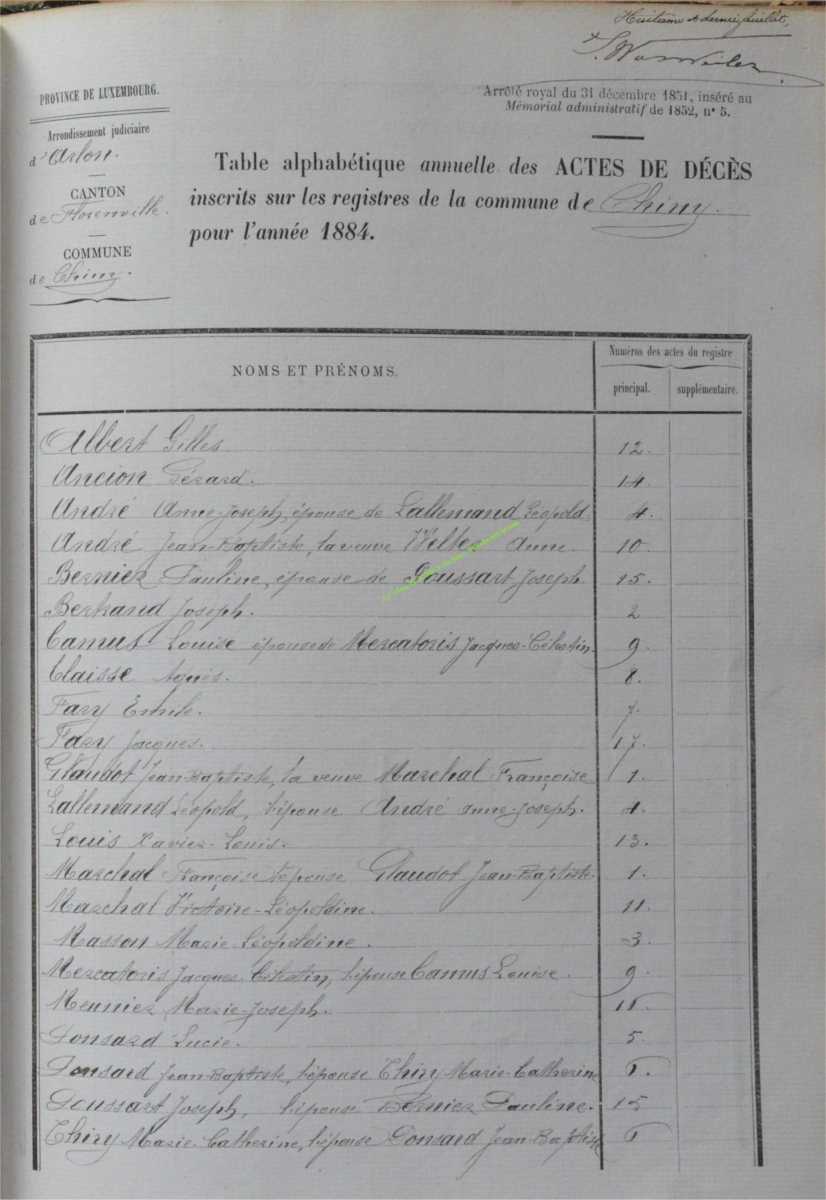 Huitième et dernier feuillet,
PROVINCE DE LUXEMBOURG.
Arrondissement judiciaire
d'Arlon.
CANTON
de Florenville.
COMMUNE
de Chiny.
Arrêté royal du 31 décembre 1851, inséré au
Mémorial administratif de 1852, n° 5.
Table alphabétique annuelle des ACTES DE DÉCÈS
inscrits sur les registres de la commune de Chiny.
pour l'année 1884.
NOMS ET PRÉNOMS.
Numéros des actes du registre
principal. supplémentaire.
Albert Gilles 12.
Ancion Gérard. 14.
André Anne-Joseph, épouse de Lallemand Léopold. 4.
André Jean-Baptiste, la veuve Welter Anne. 10.
Bernier Pauline, épouse de Poussart Joseph 15.
Bertrand Joseph. 2
Camus Louise épouse de Mercatoris Jacques-Célestin. 9.
Claisse Agnès. 8.
Fary Emile. 7.
Fary Jacques. 17.
Glaudot Jean-Baptiste, la veuve Marchal Françoise 1.
Lallemand Léopold, l'épouse André Anne-Joseph. 4.
Louis Xavier-Louis. 13.
Marchal Françoise l'épouse Glaudot Jean-Baptiste. 1.
Marchal Victoire-Léopoldine. 11.
Masson Marie-Léopoldine. 3.
Mercatoris Jacques-Célestin, l'épouse Camus Louise. 9.
Meunier Marie-Joseph.
Ponsard Lucie. 5.
Ponsard Jean-Baptiste, l'épouse Thiry Marie-Catherine
Poussart Joseph, l'épouse Bernier Pauline. 15
Thiry Marie-Catherine, l'épouse Ponsard Jean-Baptiste